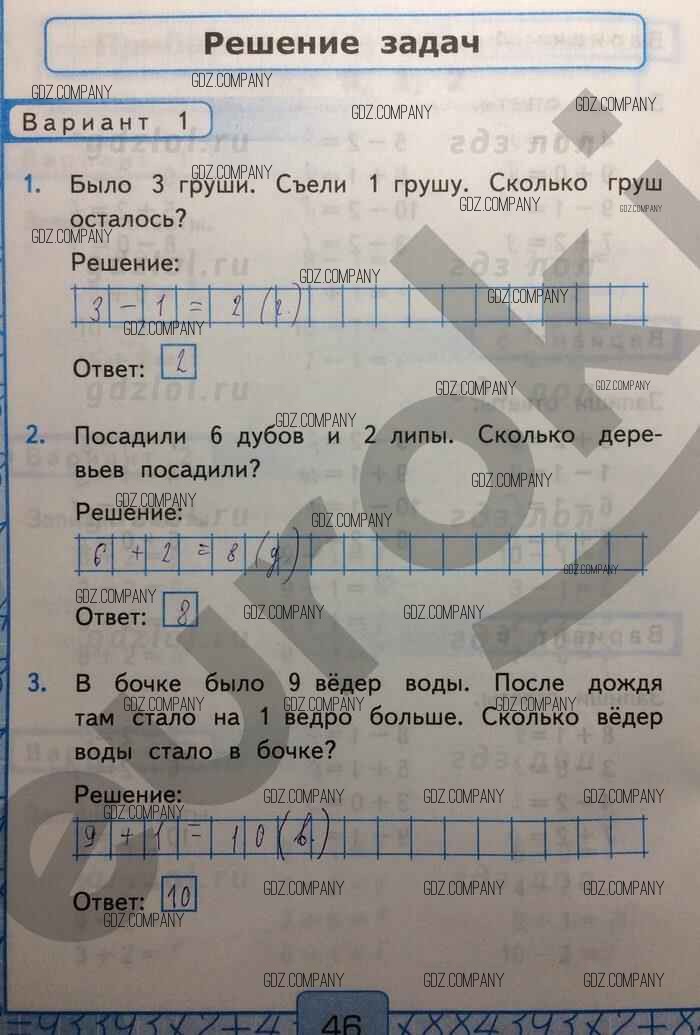 Решение задач
Вариант 1
1. Было 3 груши. Съели 1 грушу. Сколько груш
осталось?
Решение:
3 - 1 = 2 (г.)
Ответ: 2
2. Посадили 6 дубов и 2 липы. Сколько дере-
вьев посадили?
Решение:
6 + 2 = 8 (д)
Ответ: 8
3. В бочке было 9 вёдер воды. После дождя
там стало на 1 ведро больше. Сколько вёдер
воды стало в бочке?
Решение:
9 + 1 = 10 (в.)
Ответ: 10
46
GDZ.COMPANY
gdzlol.ru
euroki